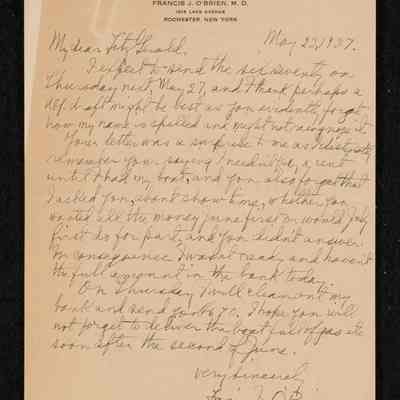 FRANCIS J. O'BRIEN, M. D.
LAKE AVENUE
ROCHESTER, NEW YORK
My dear Fitz Gerald. May 25, 1937.
I expect to send the six seventy on
Thursday next, May 27, and I think perhaps a
draft might be best as you evidently forget
how my name is spelled and might not recognize it
Your letter was a surprise to me as I distinctly
remember you saying I needn't pay a cent
until I had my boat, and you also forget that
I asked you, some time, whether you
wanted all the money June first or would July
first do for part, and you didn't answer
In consequence I wasn't ready and haven't
the full amount in the bank today.
On Thursday I will clean out my
bank and send you 670. I hope you will
not forget to deliver the boat full of gas etc
soon after the second of June.
Very sincerely